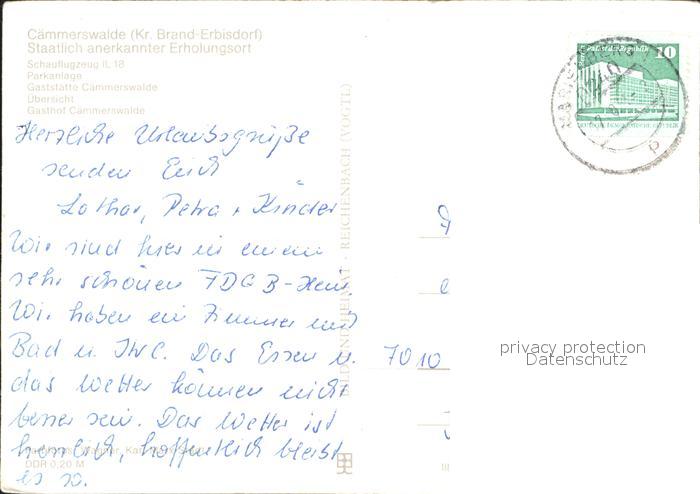 Cämmerswalde (Kr. Brand-Erbisdorf)
Staatlich anerkannter Erholungsort
Schauflugzeug IL 18
Parkanlage
Gaststätte Cämmerswalde
Übersicht
Gasthof Cämmerswalde
Herzliche Urlaubsgrüße
senden Euch
Lothar, Petra + Kinder
Wir sind hier in einem
sehr schönen FDGB-Heim.
Wir haben ein Zimmer mit
Bad u. IWC. Das Essen u.
das Wetter können nicht
besser sein. Das Wetter ist
herrlich, hoffentlich bleibt
es so.
DDR 0,20 M
BILD UND HEIMAT · REICHENBACH (VOGTL)
7010
privacy protection
Datenschutz
Berlin, Palast der Republik
10
DEUTSCHE DEMOKRATISCHE REPUBLIK